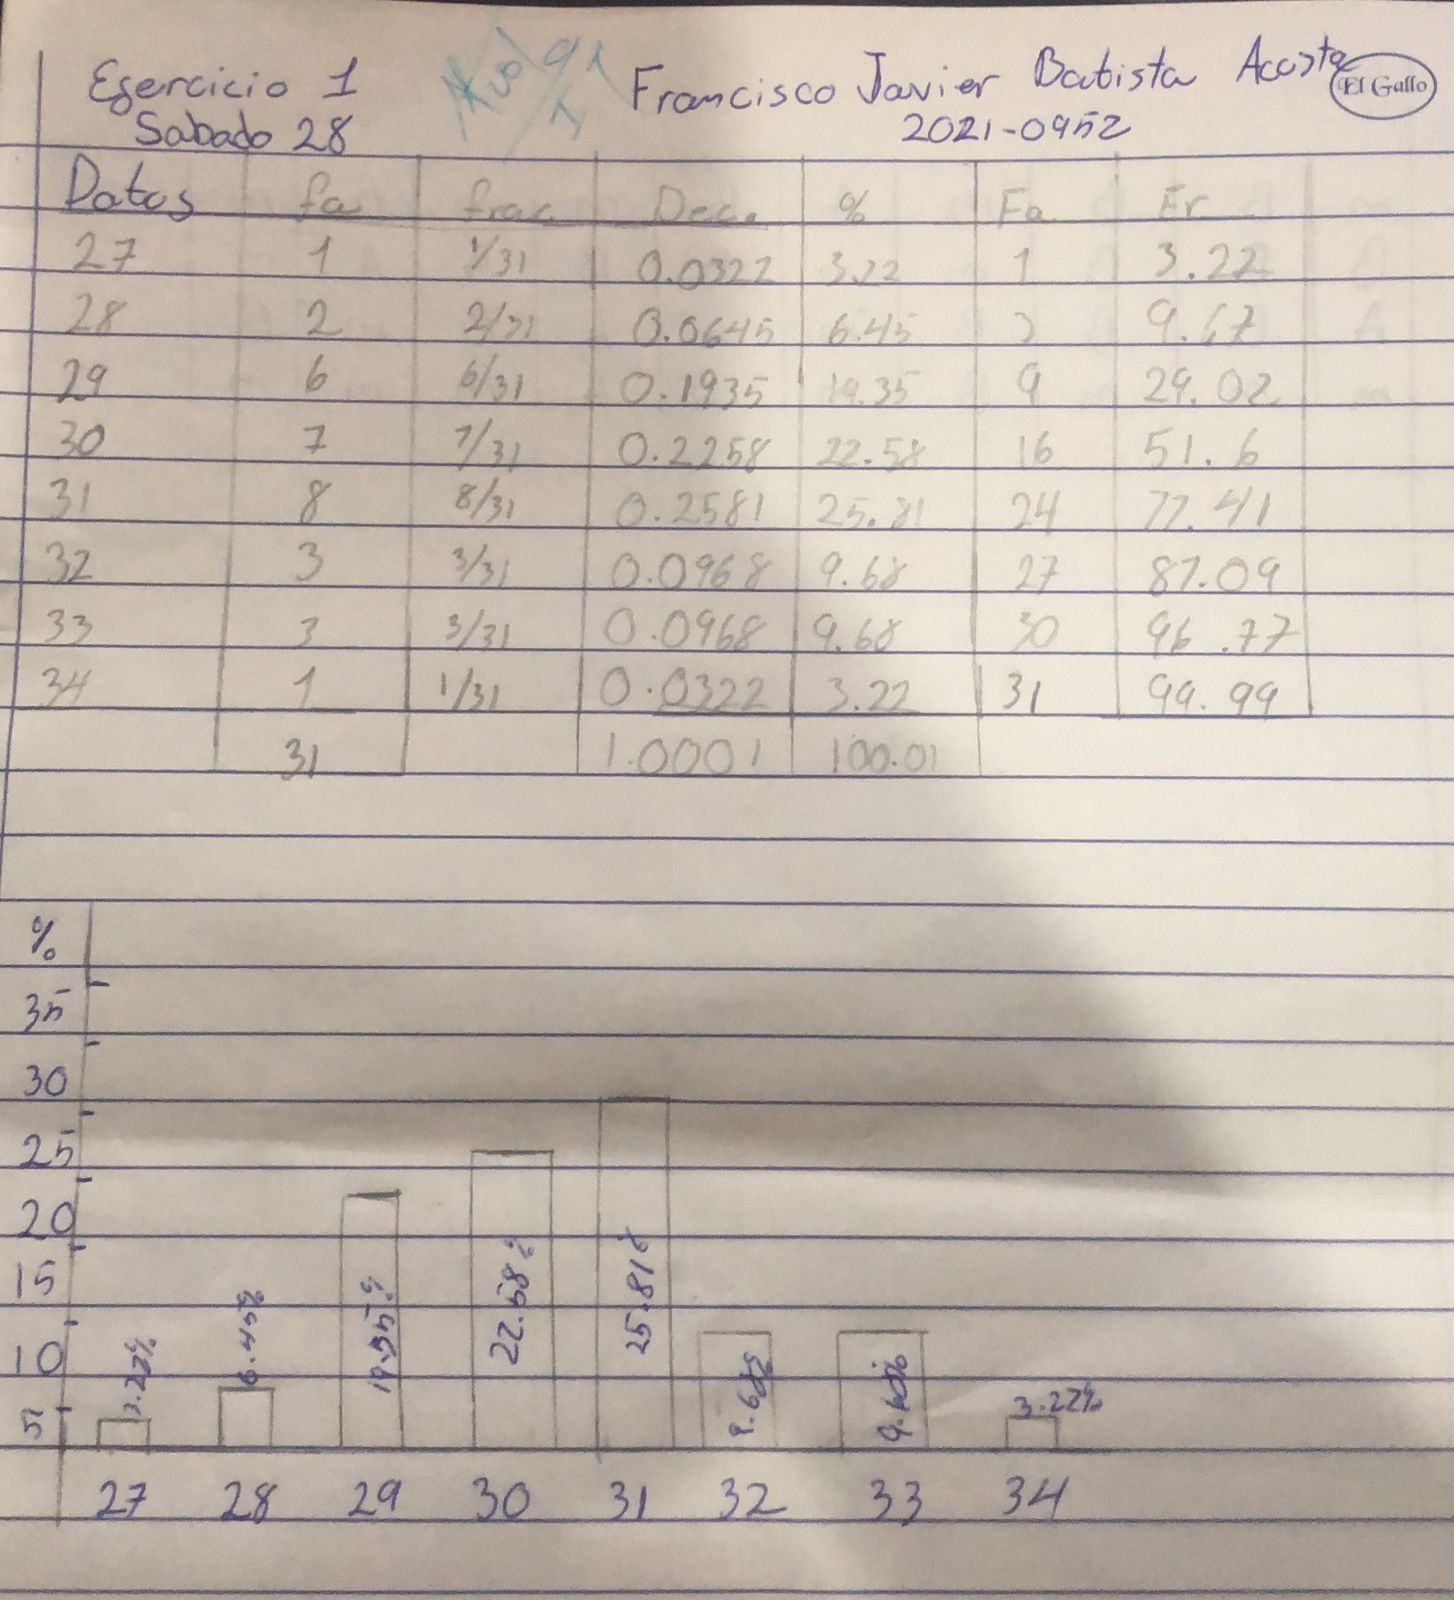 Ejercicio 1 Francisco Javier Batista Acosta El Gallo
Sabado 28 2021-0952
Datos fa frac Dec. % Fa Fr
27 1 1/31 0.0322 3.22 1 3.22
28 2 2/31 0.0645 6.45 3 9.67
29 6 6/31 0.1935 19.35 9 29.02
30 7 7/31 0.2258 22.58 16 51.6
31 8 8/31 0.2581 25.81 24 77.41
32 3 3/31 0.0968 9.68 27 87.09
33 3 3/31 0.0968 9.68 30 96.77
34 1 1/31 0.0322 3.22 31 99.99
31 1.0001 100.01
%
35
30
25
20
15
10
5
3.22%
6.45%
19.35%
22.58%
25.81%
9.68%
9.68%
3.22%
27 28 29 30 31 32 33 34